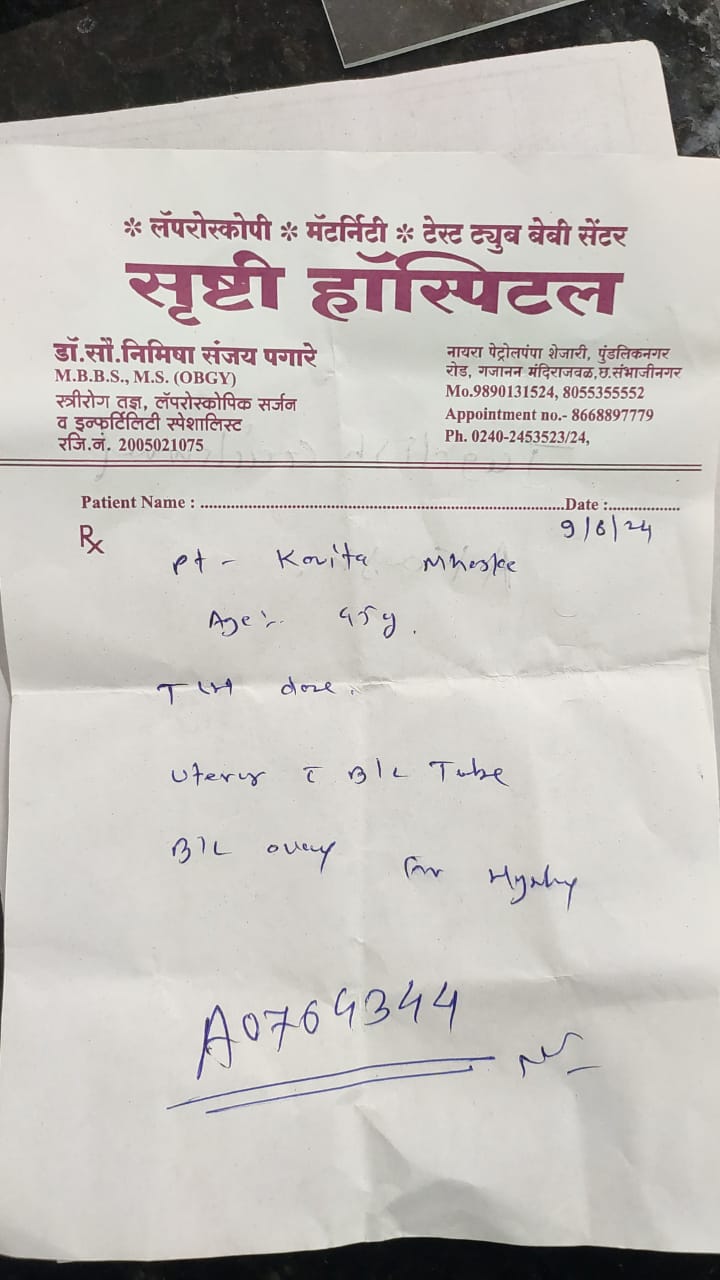 * लॅपरोस्कोपी * मॅटर्निटी * टेस्ट ट्युब बेबी सेंटर
सृष्टी हॉस्पिटल
डॉ.सौ.निमिषा संजय पगारे
M.B.B.S., M.S. (OBGY)
स्त्रीरोग तज्ञ, लॅपरोस्कोपिक सर्जन
व इन्फर्टिलिटी स्पेशालिस्ट
रजि.नं. 2005021075
नायरा पेट्रोलपंपा शेजारी, पुंडलिकनगर
रोड, गजानन मंदिराजवळ,छ.संभाजीनगर
Mo.9890131524, 8055355552
Appointment no.- 8668897779
Ph. 0240-2453523/24,
Patient Name : Date :
Rx 9/6/24
pt - Kavita
Age :- 45y.
TLH done.
Uterus c̄ B/L Tube
B/L ovary for
A0764344